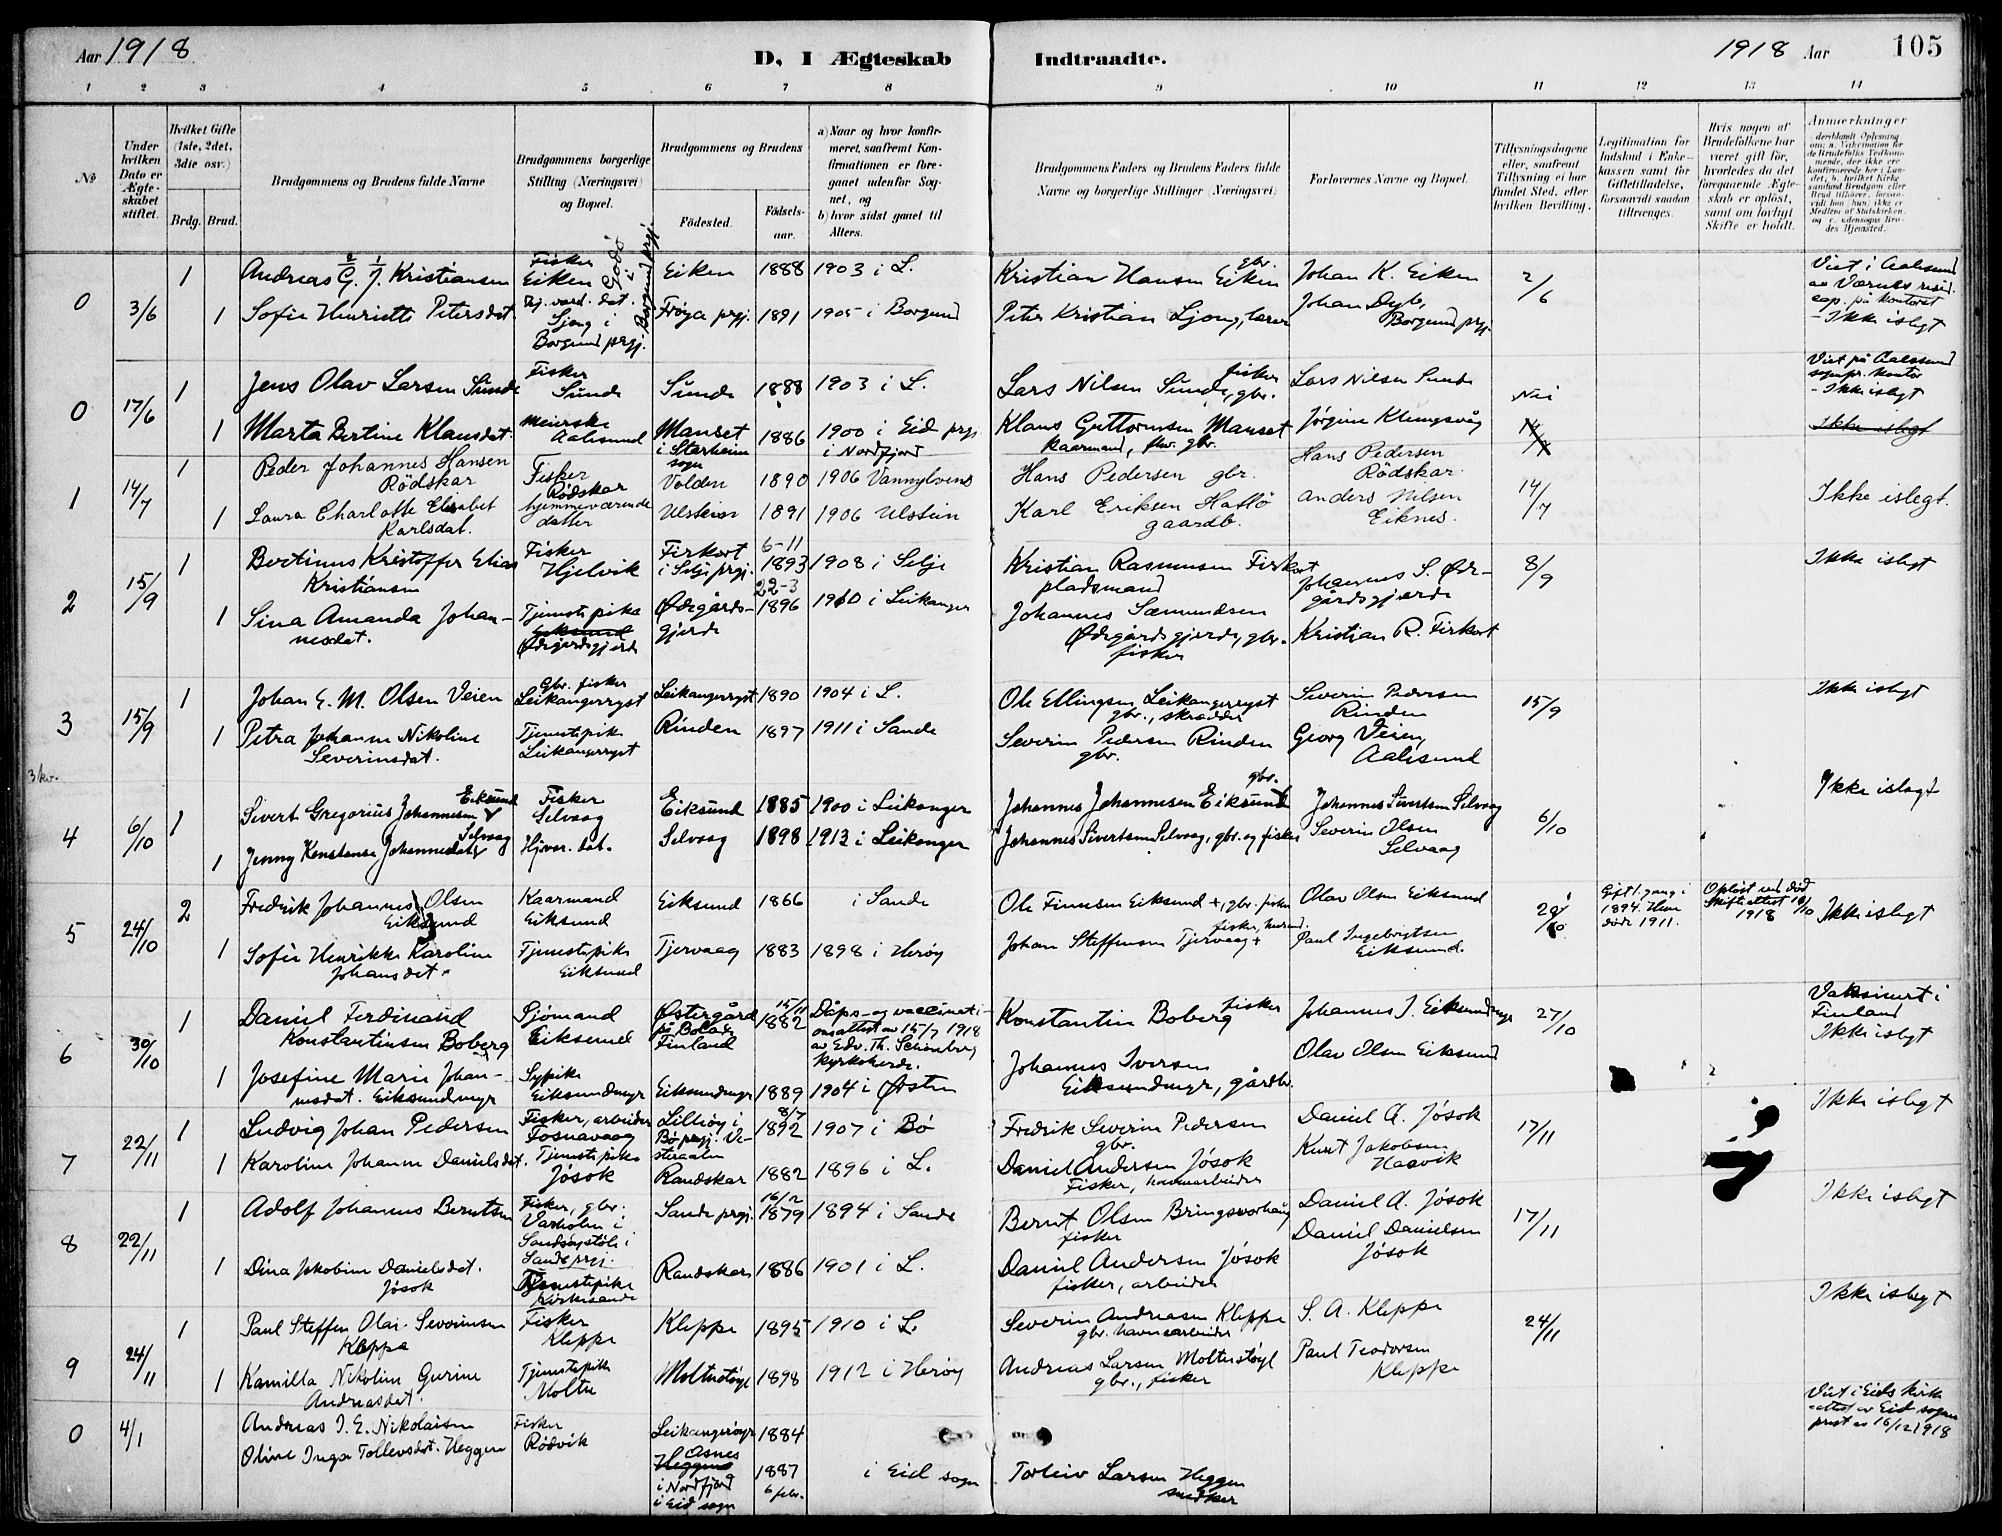 Aar 1918
D, I Ægteskab Indtraadte.
1918 Aar 105
1 2 3 4 5 6 7 8 9 10 11 12 13 14
№
Under hvilken Dato er Ægteskabet stiftet.
Hvilket Gifte (1ste, 2det, 3die osv.)
Brdg. Brud.
Brudgommens og Brudens fulde Navne
Brudgommens borgerlige Stilling (Næringsvei) og Bopæl.
Brudgommens og Brudens
Fødested.
Fødsels-aar.
a) Naar og hvor konfirmeret, saafremt Konfirmationen er foregaaet udenfor Sognet, og
b) hvor sidst gaaet til Alters.
Brudgommens Faders og Brudens Faders fulde Navne og borgerlige Stillinger (Næringsvei)
Forlovernes Navne og Bopæl.
Tillysningsdagene eller, saafremt Tillysning ei har fundet Sted, efter hvilken Bevilling.
Legitimation for Indskud i Enkekassen samt for Giftetilladelse, forsaavidt saadan tiltrænges.
Hvis nogen af Brudefolkene har været gift før, hvorledes da det foregaaende Ægteskab er opløst, samt om lovligt Skifte er holdt.
Anmerkninger
0 3/6 1 Andreas G. J. Kristiansen Fisker Eiken Eiken 1888 1903 i L. Kristian Hansen Eiken gbr. Johan K. Eiken 2/6 Viet i Aalesund
1 Sofie Henriette Petersdat. Borgund prgj. Frøya prgj. 1891 1905 i Borgund Peter Kristian Ljong, lærer Johan Dyb, Borgund prgj. - Ikke islegt
0 17/6 1 Jens Olav Larsen Sunde Fisker Sunde Sunde 1888 1903 i L. Lars Nilsen Sunde, fisker gbr. Lars Nilsen Sunde Nei Viet på Aalesund sognepr. kontor - Ikke islegt
1 Marta Bertine Klausdat. Meierske Aalesund Manset i Starheim sogn 1886 1900 i Eid prgj i Nordfjord Klaus Guttormsen Manset kaarmand, gbr. Jørgine Klungsvåg Ikke islegt
1 14/7 1 Peder Johannes Hansen Rödskar Fisker Rödskar Volden 1890 1906 Vannylvens Hans Pedersen gbr. Hans Pedersen Rödskar 14/7 Ikke islegt.
1 Laura Charlotte Elisabet Karlsdat. hjemmeværende datter Ulstein 1891 1906 Ulstein Karl Eriksen Hatlö gaardb. Anders Nilsen Eiknes.
2 15/9 1 Bertinus Kristoffer Elias Kristiansen Fisker Hjelvik Firkort i Selje prgj. 6-11 1893 1908 i Selje Kristian Rasmusen Firkort pladsmand Johannes S. Ødegårdsgjerde 8/9 Ikke islegt
1 Sina Amanda Johannesdat. Tjenestepike Eiksund Ødegårdsgjerde Ødegårdsgjerde 22-3 1896 1910 i Leikanger Johannes Sæmundsen Ødegårdsgjerde, gbr. fisker Kristian R. Firkort
3 15/9 1 Johan E. M. Olsen Veien Gbr. fisker Leikangerryst Leikangerryst 1890 1904 i L. Ole Ellingsen Leikangerryst gbr., skrædder Severin Pedersen Rinden 15/9 Ikke islegt
1 Petra Johanne Nikoline Severinsdat. Tjenestepike Leikangerryst Rinden 1897 1911 i Sande Severin Pedersen Rinden gbr. Georg Veien, Aalesund
3 kv.
4 6/10 1 Sivert Gregorius Johannesen Eiksund Fisker Selvaag Eiksund 1885 1900 i Leikanger Johannes Johannesen Eiksund gbr. Johannes Sivertsen Selvaag 6/10 Ikke islegt
1 Jenny Konstanse Johannesdat. Selvaag Hjvær. dat. Selvaag 1898 1913 i Leikanger Johannes Sivertsen Selvaag, gbr. og fisker Severin Olsen Selvaag
5 24/10 2 Fredrik Johannes Olsen Eiksund Kaarmand Eiksund Eiksund 1866 i Sande Ole Finnsen Eiksund +, gbr. fisker Olav Olsen Eiksund 20/10 Gift 1. gang i 1894. Hun døde 1911. Opløst ved død Skifteattest 18/10 1918 Ikke islegt
1 Sofie Henrikke Karoline Johansdat. Tjenestepike Eiksund Tjervaag 1883 1898 i Herøy Johan Steffensen Tjervaag + fisker, husmd. Paul Ingebrigtsen Eiksund.
6 30/10 1 Daniel Ferdinand Konstantinsen Boberg Sjömand Eiksund Østergård Finland 15/11 1882 Dåps- og vaccinationsattest av 15/7 1918 av Edv. Th. Schönberg kyrkoherde. Konstantin Boberg fisker Johannes I. Eiksundmyr 27/10 Vaksinert i Finland Ikke islegt
1 Josefine Marie Johannesdat. Eiksundmyr Sypike Eiksundmyr Eiksundmyr 1889 1904 i Ørsten Johannes Iversen Eiksundmyr, gårdbr. Olav Olsen Eiksund
7 22/11 1 Ludvig Johan Pedersen Fisker, arbeider Fosnavaag Lilleøy i Bø prgj. Vesteraalen 8/7 1892 1907 i Bø Fredrik Severin Pedersen gbr. Daniel A. Jósok 17/11 Ikke islegt
1 Karoline Johanne Danielsdat. Tjenestepike Jósok Randskar 1882 1896 i L. Daniel Andersen Jósok Fisker, havnearbeider Kurt Jakobsen Haavik
8 22/11 1 Adolf Johannes Berntsen Fisker, gbr. Varholm i Sande prgj. Sande prgj. 16/12 1879 1894 i Sande Bernt Olsen Bringsvorhaug fisker Daniel A. Jósok 17/11 Ikke islegt
1 Dina Jakobine Danielsdat. Jósok Tjenestepike Kirkesande Randskar 1886 1901 i L. Daniel Andersen Jósok fisker, arbeider Daniel Danielsen Jósok
9 24/11 1 Paul Steffen Olai Severinsen Kleppe Fisker Kleppe Kleppe 1895 1910 i L. Severin Andreasen Kleppe gbr. havnearbeider S. A. Kleppe 24/11 Ikke islegt
1 Kamilla Nikoline Gurine Andreasdat. Tjenestepike Moltu Moltustøyl 1898 1912 i Herøy Andreas Larsen Moltustøyl gbr., fisker Paul Teodorsen Kleppe
0 4/1 Andreas I. E. Nikolaisen Fisker Rödvik Leikangerøyr 1884 Viet i Eids kirke attest av Eid sogneprest av 16/12 1918
Oline Inga Tollevsdat. Heggen Osnes Heggen i Nordfjord i Eid sogn 1887 6 febr. i Eid sogn Torleiv Larsen Heggen snedker